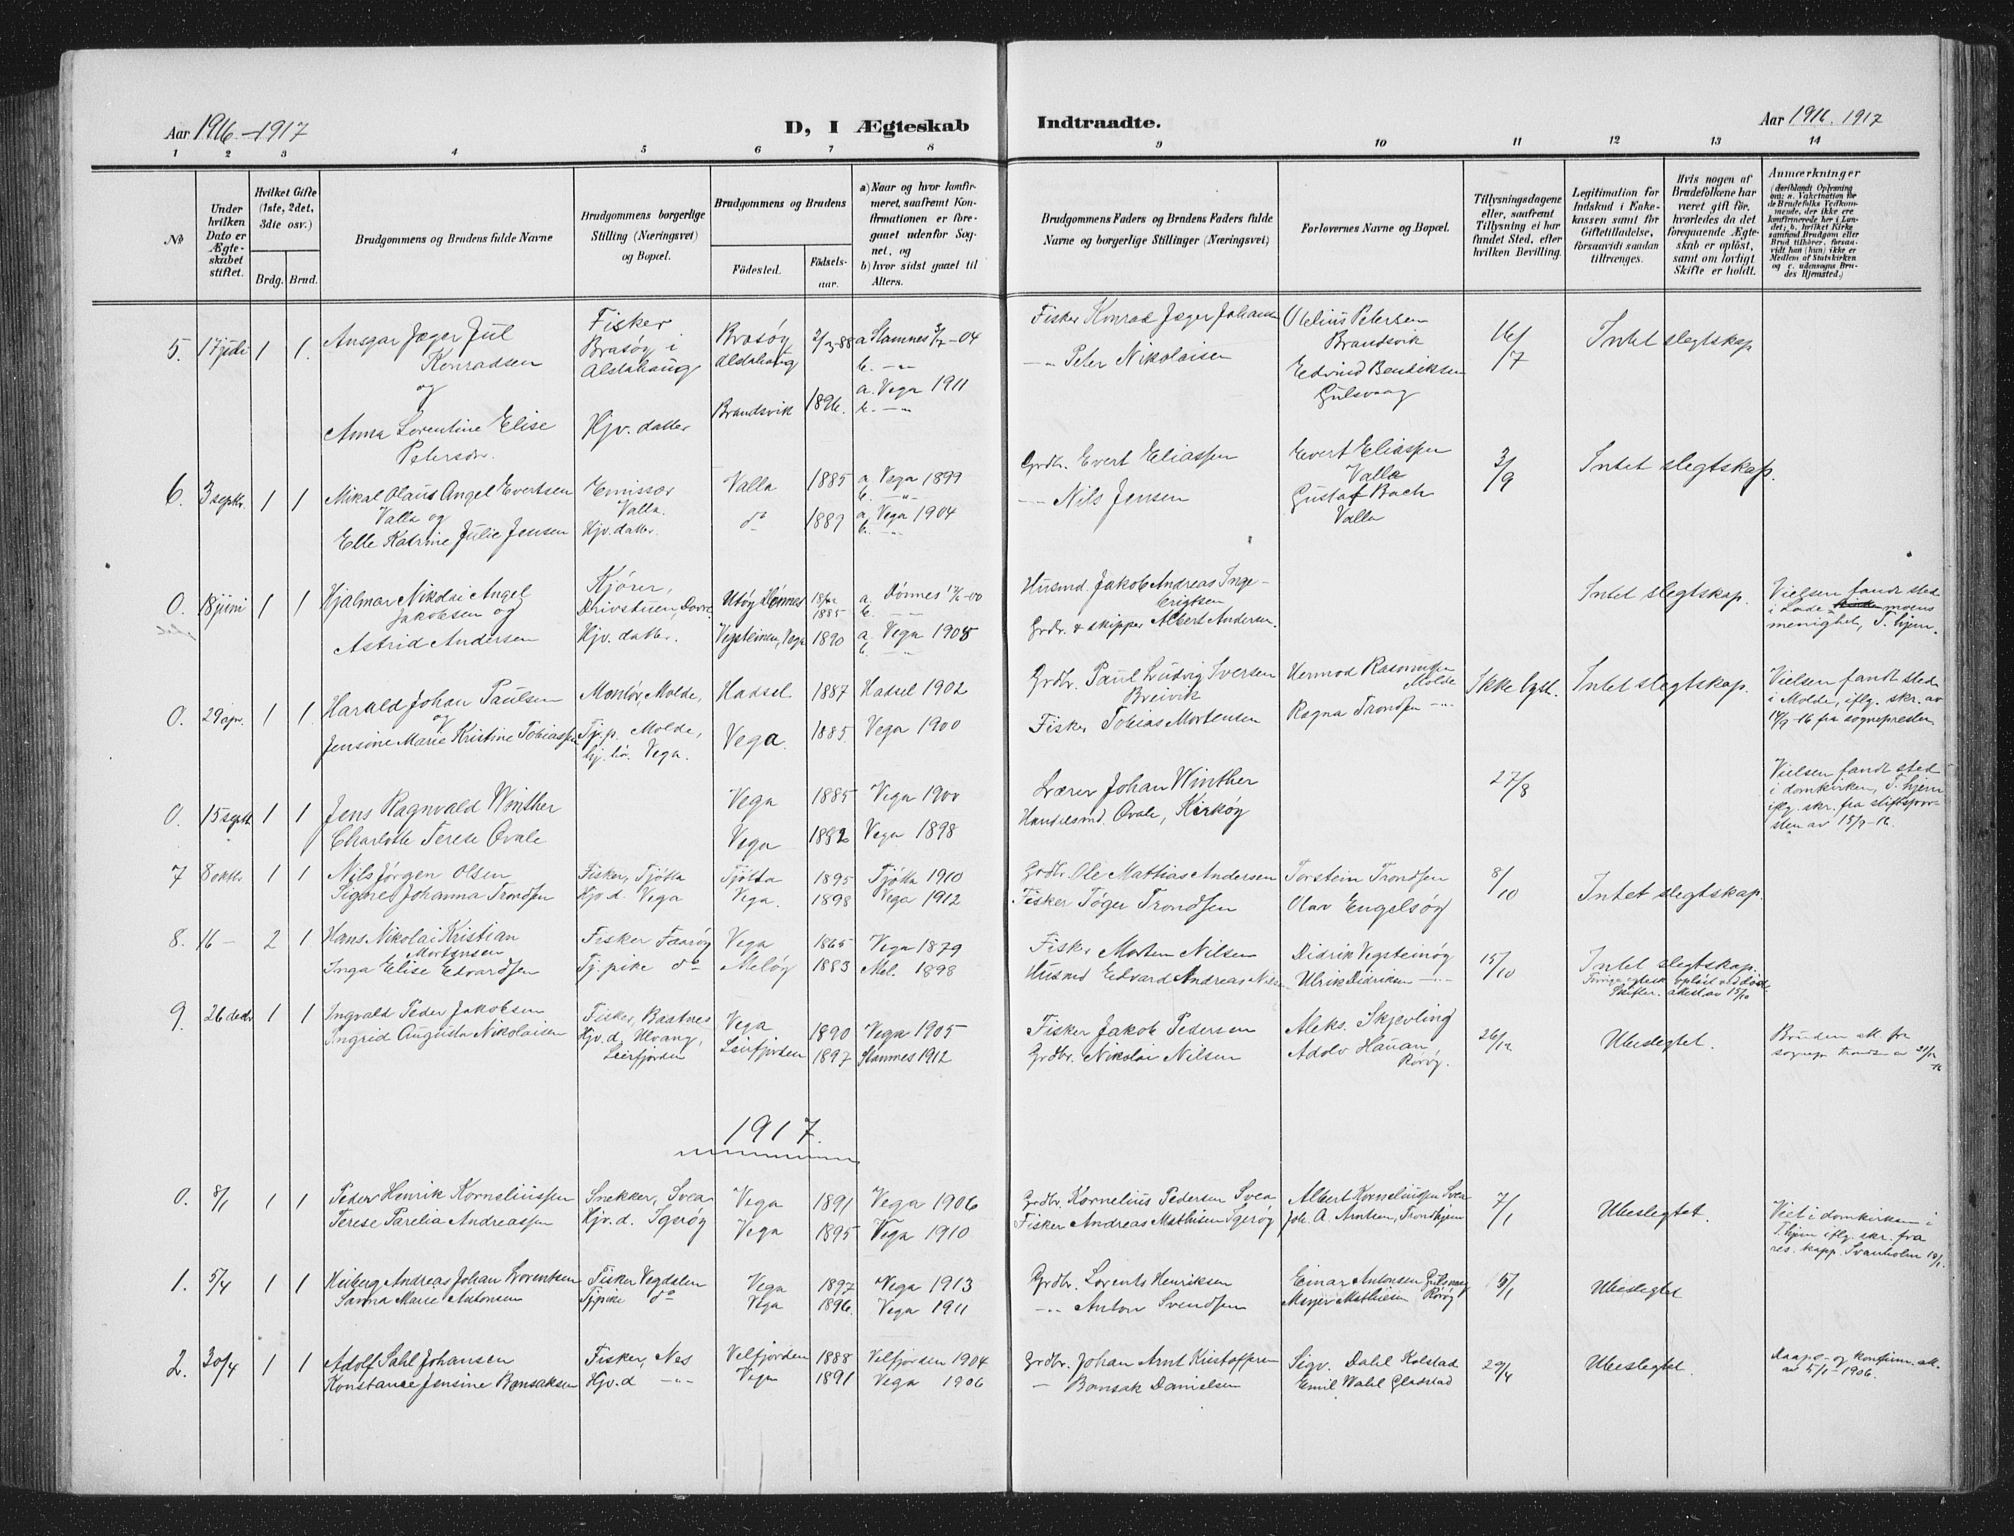 Aar 1916-1917
D, I Ægteskab Indtraadte.
Aar 1916. 1917
1 2 3 4 5 6 7 8 9 10 11 12 13 14
No
Under hvilken Dato er Ægteskabet stiftet.
Hvilket Gifte (1ste, 2det, 3die osv.)
Brdg. Brud.
Brudgommens og Brudens fulde Navne
Brudgommens borgerlige Stilling (Næringsvei) og Bopæl.
Brudgommens og Brudens
Födested. Födselsaar.
a) Naar og hvor konfirmeret, saafremt Konfirmationen er foregaaet udenfor Sognet, og
b) hvor sidst gaaet til Alters.
Brudgommens Faders og Brudens Faders fulde Navne og borgerlige Stillinger (Næringsvei)
Forlovernes Navne og Bopæl.
Tillysningsdagene eller, saafremt Tillysning ei har fundet Sted, efter hvilken Bevilling.
Legitimation for Indskud i Enkekassen samt for Giftetilladelse, forsaavidt saadan tiltrænges.
Hvis nogen af Brudefolkene har været gift för, hvorledes da det foregaaende Ægteskab er oplöst, samt om lovligt Skifte er holdt.
Anmærkninger
5. 17 juli 1 1. Ansgar Jæger Jul Konradsen Fisker Brasøy i Alstahaug Brasøy Alstahaug 2/3-88 a Stamnes 3/7-04 Fisker Konrad Jæger Johansen Olelius Petersen Brandsvik 16/7 Intet slegtskap
og
Anna Lorentine Elise Petersdr. Hjv. datter Brandsvik 1896. a. Vega 1911 Peter Nikolaisen Edvind Bendiksen Gulsvaag
6. 3 septbr. 1 1 Mikal Olaus Angel Evertsen Valla og Emissær Valla. Valla 1885 a Vega 1899 Grdbr. Evert Eliassen Evert Eliassen Valla 3/9 Intet slegtskap.
Elle Katrine Julie Jensen Hjv. datter. do 1889 a. Vega 1904 Nils Jensen Gustaf Bach Valla
0. 18 juni 1 1 Hjalmar Nikolai Angel Jakobsen og Kjører, Drivstuen, Dovre Utøy Dønnes 1885 a. Dønnes Husmd. Jakob Andreas Ingebrigtsen Intet slegtskap. Vielsen fandt sted i Lademoens menighet, T.hjem.
Astrid Andersen Hjv. datter. Vegsteinen, Vega 1890 a. Vega 1905 Grdr. & skipper Albert Andersen.
0. 29 apr. 1 1 Harald Johan Paulsen Montør, Molde, Hadsel 1887 Hadsel 1902 Grdbr. Paul Ludvig Iversen Breivik Hermod Rasmussen Molde Ikke lyst. Intet slegtskap. Vielsen fandt sted i Molde, iflg. skr. av 14/7-16 fra sognepresten
og
Jensine Marie Kristine Tobiassen Tj.p. Molde, hj.hø. Vega. Vega. 1885. Vega 1900 Fisker Tobias Mortensen Ragna Trondsen
0. 15 septb. 1 1 Jens Ragnvald Winther Vega 1885 Vega 1900 Lærer Johan Winther 27/8 Vielsen fandt sted i domkirken, T.hjem iflg. skr. fra stiftsprosten av 15/9-16.
Charlotte Terese Ovale Vega 1882 Vega 1898 Handelsmd. Ovale, Kirkøy
7 8 oktbr 1 1 Nils Jørgen Olsen Fisker, Tjøtta Tjøtta 1895 Tjøtta 1910 Grdbr. Ole Mathias Andersen Torstein Trondsen 8/10 Intet slegtskap.
Signe Johanna Trondsen Hjv.d. Vega Vega. 1898 Vega 1912 Fisker Tøger Trondsen Olav Engelsøy
8. 16 - 2 1 Hans Nikolai Kristian Mortensen Fisker Faarøy Vega 1865 Vega 1879 Fisker Morten Nilsen Didrik Vegsteinøy 15/10 Intet slegtskap.
Inga Elise Edvardsen Tj. pike do Meløy 1883 Mel. 1898 Husmd Edvard Andreas Nilsen Ulrik Didriksen
9. 26 decbr 1 1 Ingvald Peder Jakobsen Fisker, Baatnes Vega 1890 Vega 1905 Fisker Jakob Pedersen Aleks. Skjevling 26/12 Ubeslegtet. Bruden
Ingrid Augusta Nikolaisen Hjv.d. Ulvang, Leirfjorden Leirfjorden 1897 Stamnes 1912 Grdbr. Nikolai Nilsen Adolv Hauan Rørøy.
1917.
0. 8/1 1 1 Peder Henrik Kornelliussen Snekker, Svea Vega 1891 Vega 1906 Grdbr. Kornelius Pedersen Svea Albert Korneliussen Svea 7/1 Ubeslegtet. Viet i domkirken i T.hjem iflg. skr. fra res. kapp. Svanholm 18/1.
Terese Parelia Andreassen Hjv.d. Igerøy Vega 1895 Vega 1910 Fisker Andreas Mathisen Igerøy Joh. A. Arntsen, Trondhjem
1. 5/4 1 1 Heiberg Andreas Johan Lorentsen Fisker Vegdalen Vega 1897 Vega 1913 Grdbr. Lorents Henriksen Einar Antonsen Gulsvaag 5/1 Ubeslegtet
Sanna Marie Antonsen Tjpike do Vega 1896. Vega 1911 Anton Svendsen Meyer Mathisen Rørøy
2. 30/4 1 1 Adolf Sahl Johansen Fisker, Nes Velfjorden 1888 Velfjorden 1904 Grdbr. Johan Arnt Kristoffersen Sigv. Dahl Kolstad 29/4 Ubeslegtet. Daaps- og konfirm. at. av 5/1-1906.
Konstance Jensine Bonsaksen Hjv.d Vega 1891 Vega 1906 Bonsak Danielsen Emil Wahl Gladstad